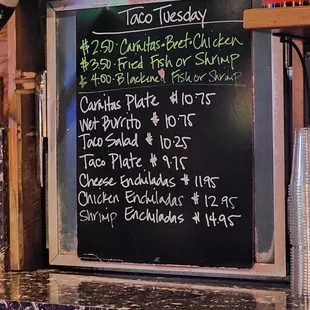 Taco Tuesday
$2.50 • Carnitas • Beef • Chicken
$3.50 • Fried Fish or Shrimp
$4.00 • Blackened Fish or Shrimp
Carnitas Plate $10.75
Wet Burrito $10.75
Taco Salad $10.25
Taco Plate $9.75
Cheese Enchiladas $11.95
Chicken Enchiladas $12.95
Shrimp Enchiladas $14.95